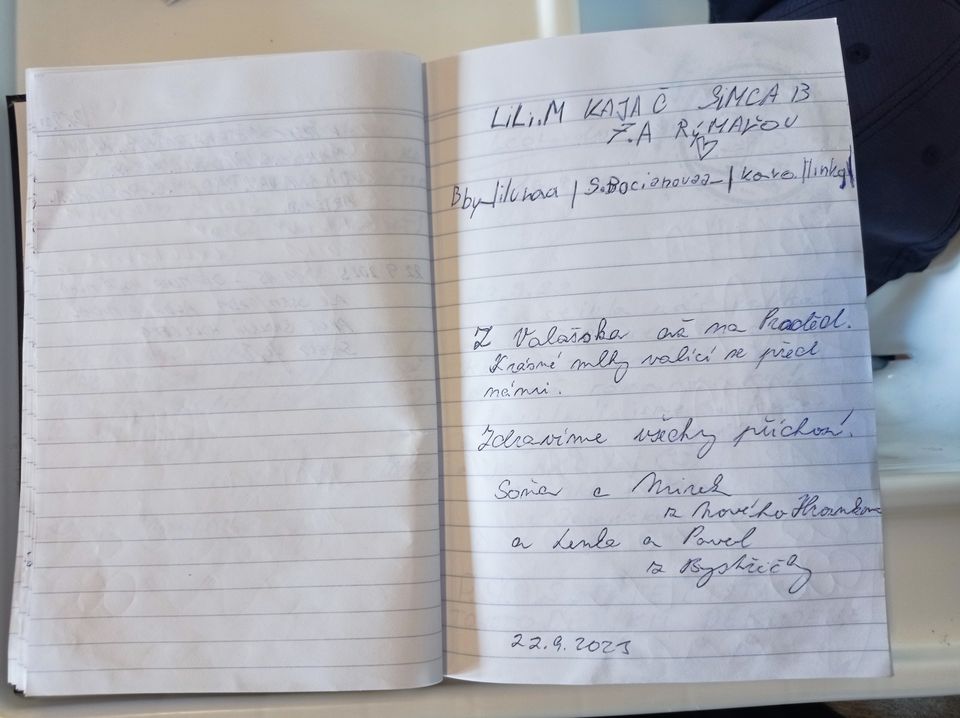 LiLi.M KAJAČ SiMCA B
7.A RÝMAŘOV
Bby_lilunaa / S.Bocianovaa_ / karo.linky
Z Valašska až na Praděd.
Krásné mlhy valící se před
námi.
Zdravíme všechny příchozí.
Soňa a Mirek
z Nového Hrozenkova
a Lenka a Pavel
z Bystřičky
22.9.2023